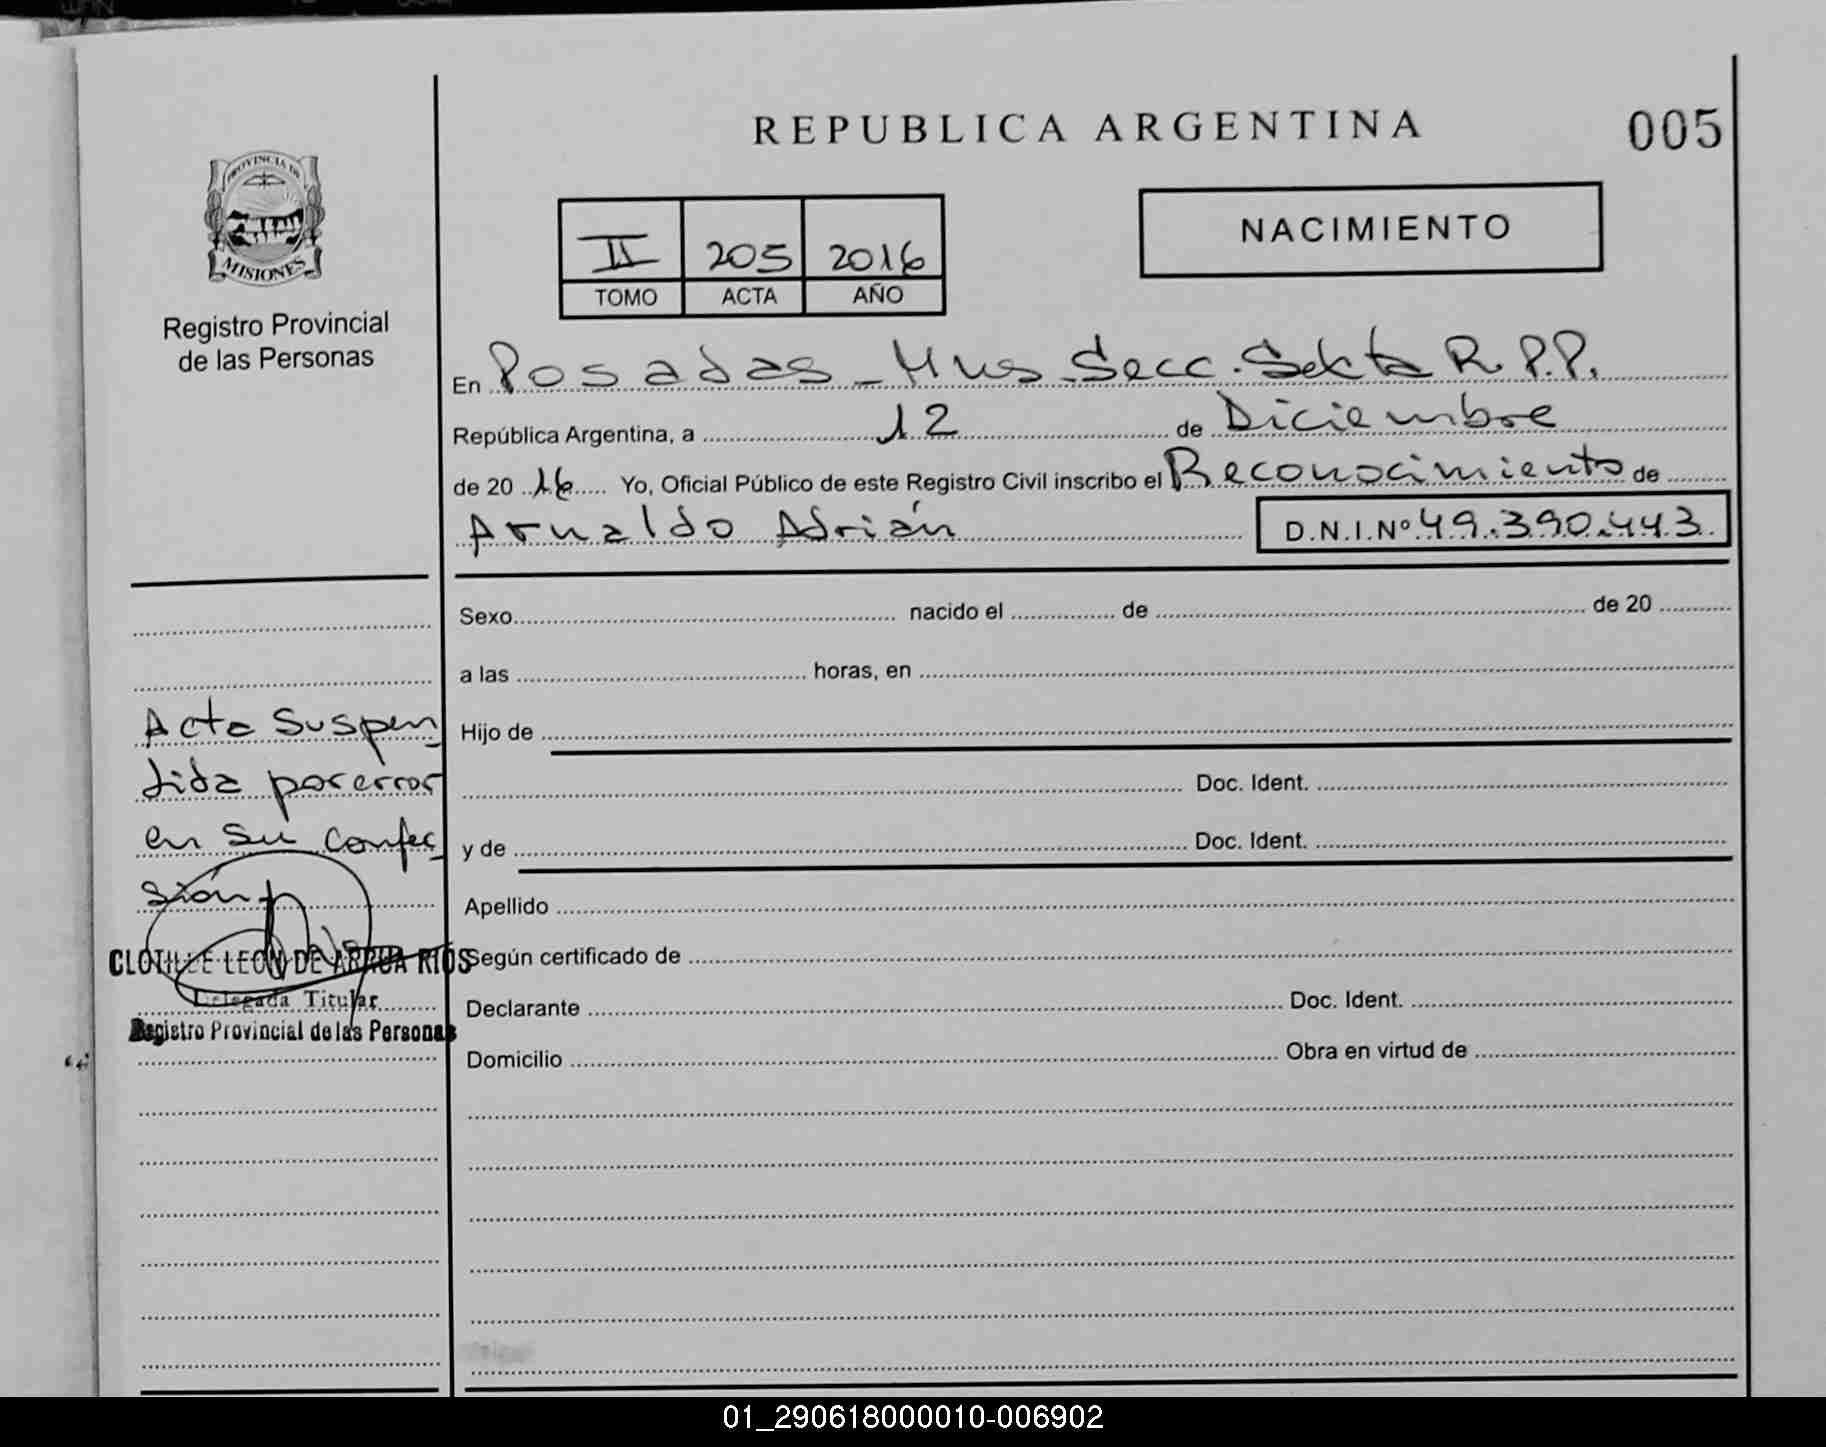 REPUBLICA ARGENTINA
005
PROVINCIA DE
MISIONES
Registro Provincial
de las Personas
II 205 2016
TOMO ACTA AÑO
NACIMIENTO
En Posadas - Mnes Secc. Sekta R.P.P.
República Argentina, a 12 de Diciembre
de 20 16 Yo, Oficial Público de este Registro Civil inscribo el Reconocimiento de
Arnaldo Adrián D.N.I.Nº 49.390.443
Sexo nacido el de de 20
a las horas, en
Hijo de
Doc. Ident.
y de Doc. Ident.
Apellido
Según certificado de
Declarante Doc. Ident.
Domicilio Obra en virtud de
Acta Suspen
dida por error
en su confec
sión
CLOTILDE LEON DE ARRUA RIOS
Delegada Titular
Registro Provincial de las Personas
01_290618000010-006902